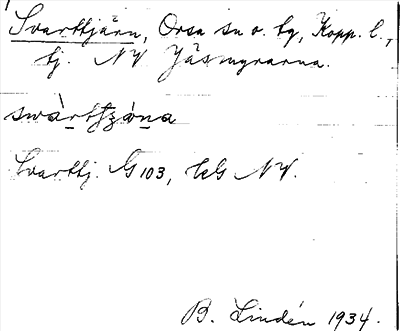 Svarttjärn, Orsa sn o. tg, Kopp. l.,
tj. NV Jäsmyrarna.
swàrttjzə́na
Svarttj. G 103, bl G NV.
B. Lindén 1934.